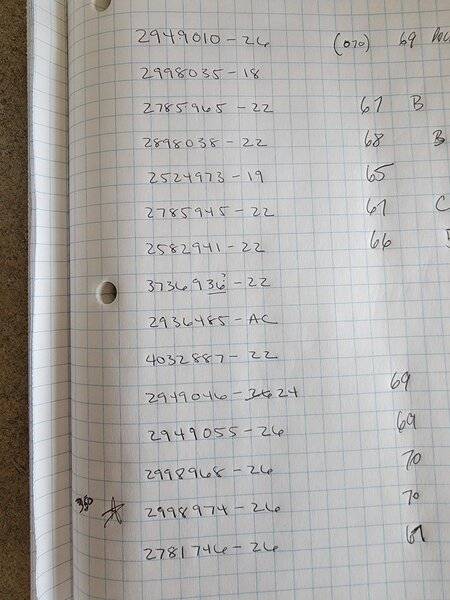 2949010-26 (070) 69
2998035-18
2785965-22 67 B
2898038-22 68 B
2524973-19 65
2785945-22 67 C
2582941-22 66
3736936-22
?
2936485-AC
4032887-22
2949046-24 69
2949055-26 69
2998968-26 70
350 2998974-26 70
2781746-26 67